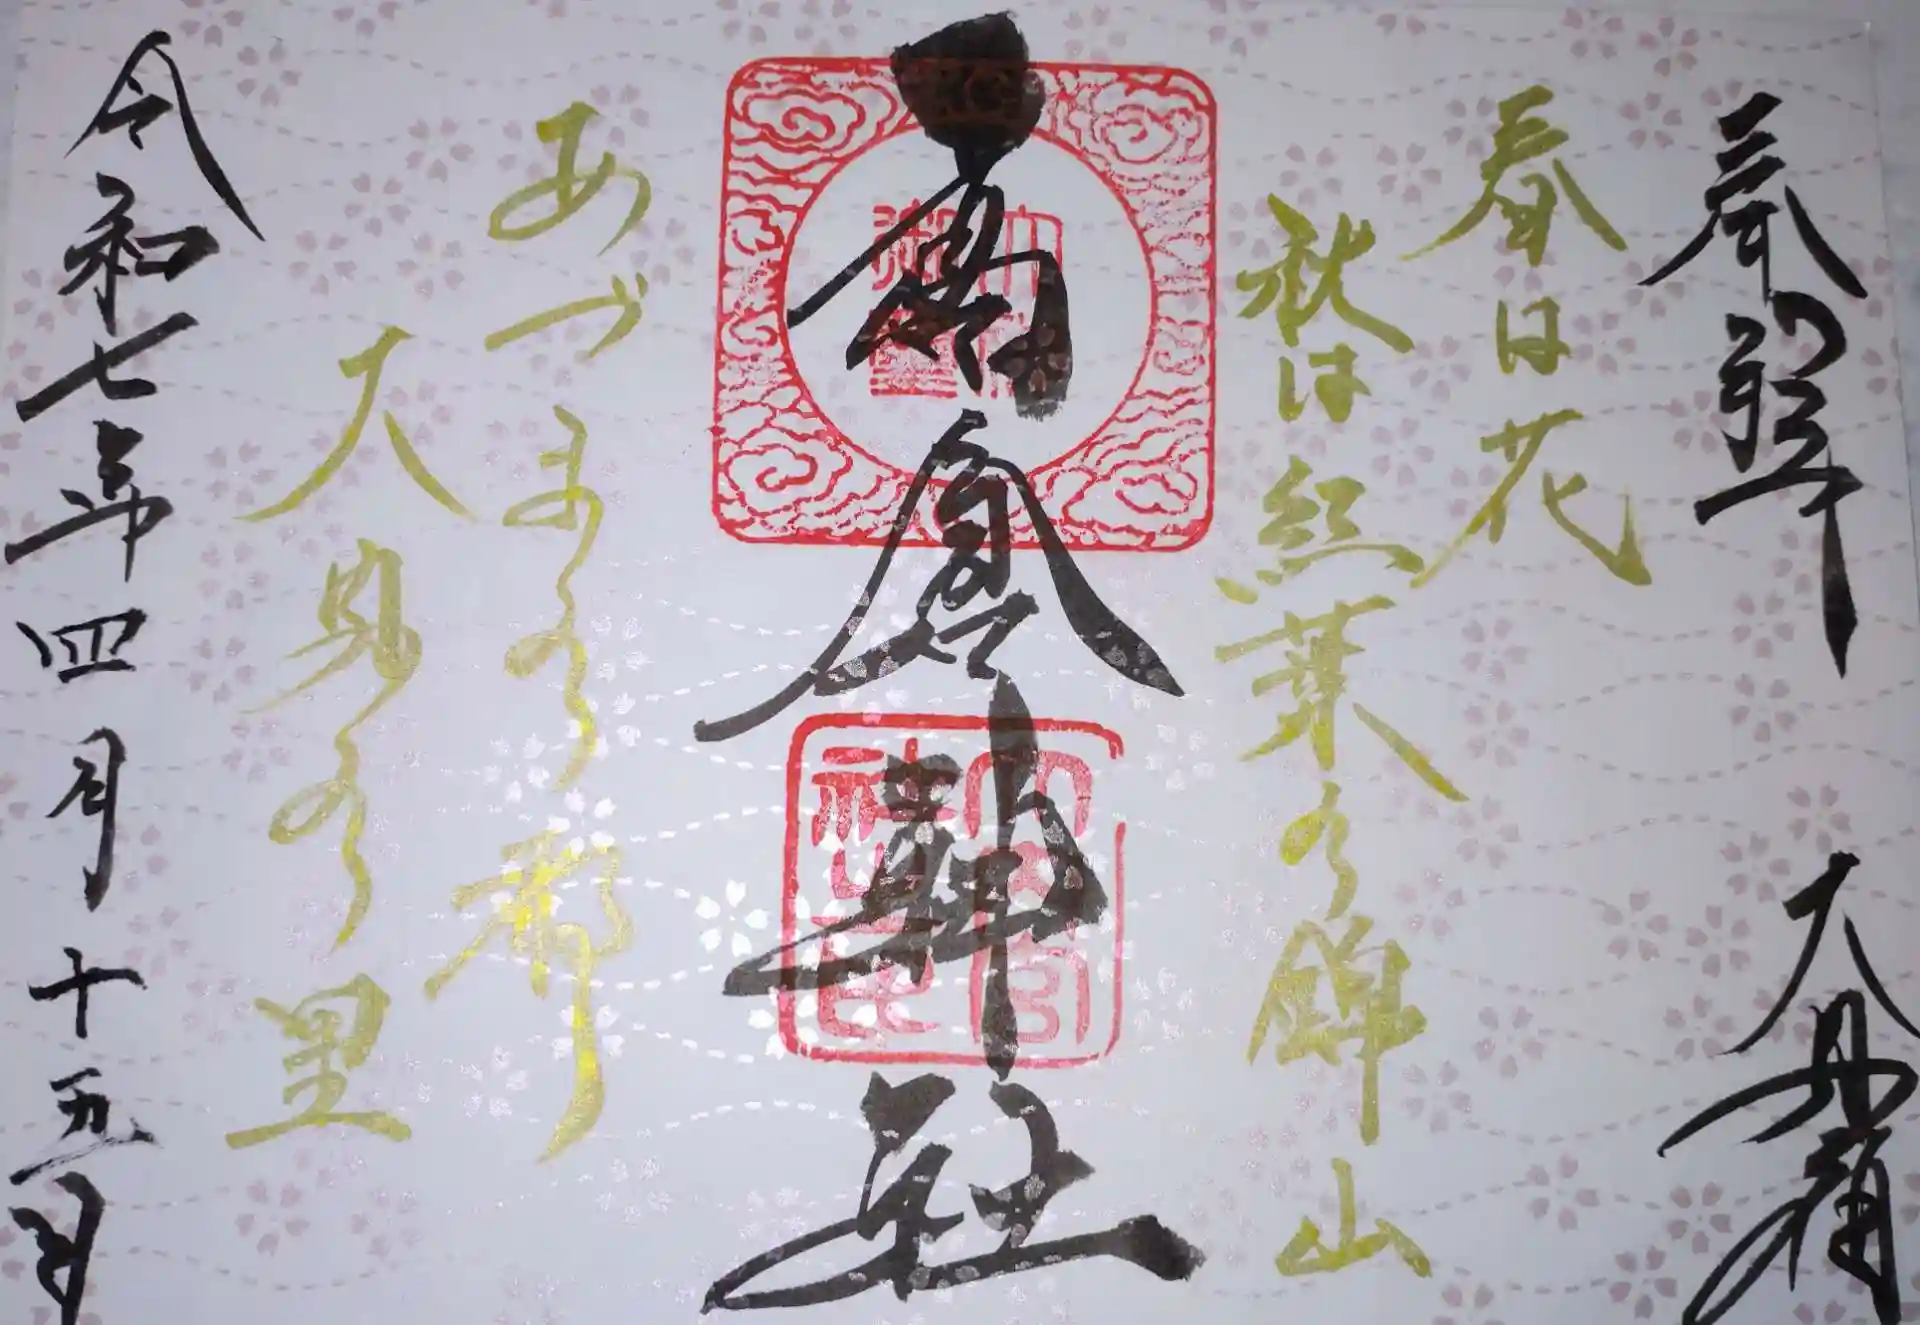 奉拝
春は花
秋は紅葉の錦山
高倉神社
あづまの都
大内の里
令和七年四月十五日